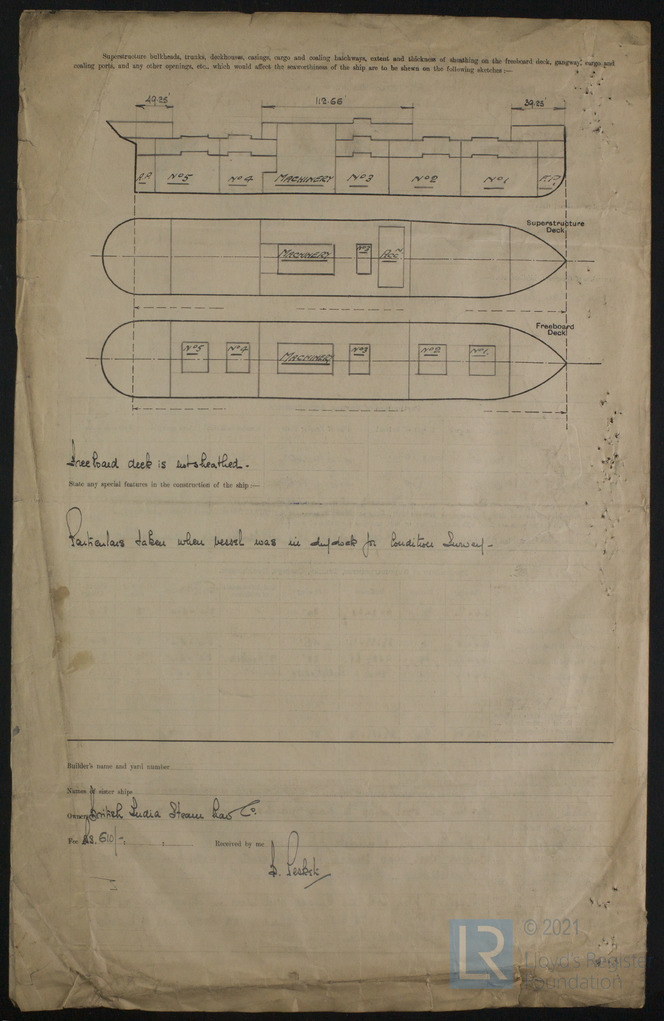 Superstructure bulkheads, trunks, deckhouses, casings, cargo and coaling hatchways, extent and thickness of sheathing on the freeboard deck, gangway, cargo and
coaling ports, and any other openings, etc., which would affect the seaworthiness of the ship are to be shewn on the following sketches:—
49.25' 112.66 39.25
A.P. No5 No4 MACHINERY No3 No2 No1 F.P.
Superstructure
Deck
MACHINERY No3
Freeboard
Deck
No5 No4 MACHINERY No3 No2 No1
Freeboard deck is not sheathed.
State any special features in the construction of the ship:—
Particulars taken when vessel was in drydock for Condition Survey.
Builder's name and yard number
Names of sister ships
Owners British India Steam Nav Co.
Fee Rs. 60/-
Received by me
LR
© 2021
Lloyd's Register
Foundation